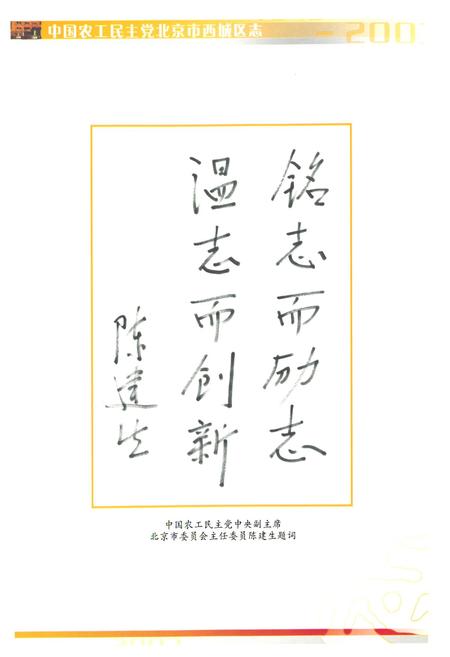 中国农工民主党北京市西城区志
铭志而励志
温志而创新
陈建生
中国农工民主党中央副主席
北京市委员会主任委员陈建生题词